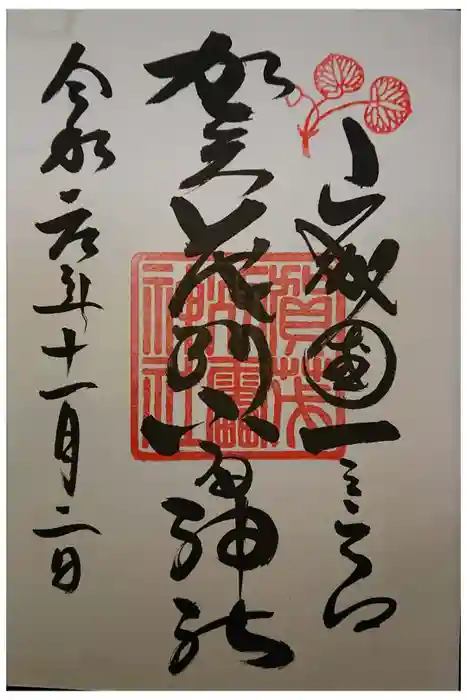 山城國一之宮
賀茂別雷神社
令和元年十一月二日
賀茂別雷神社